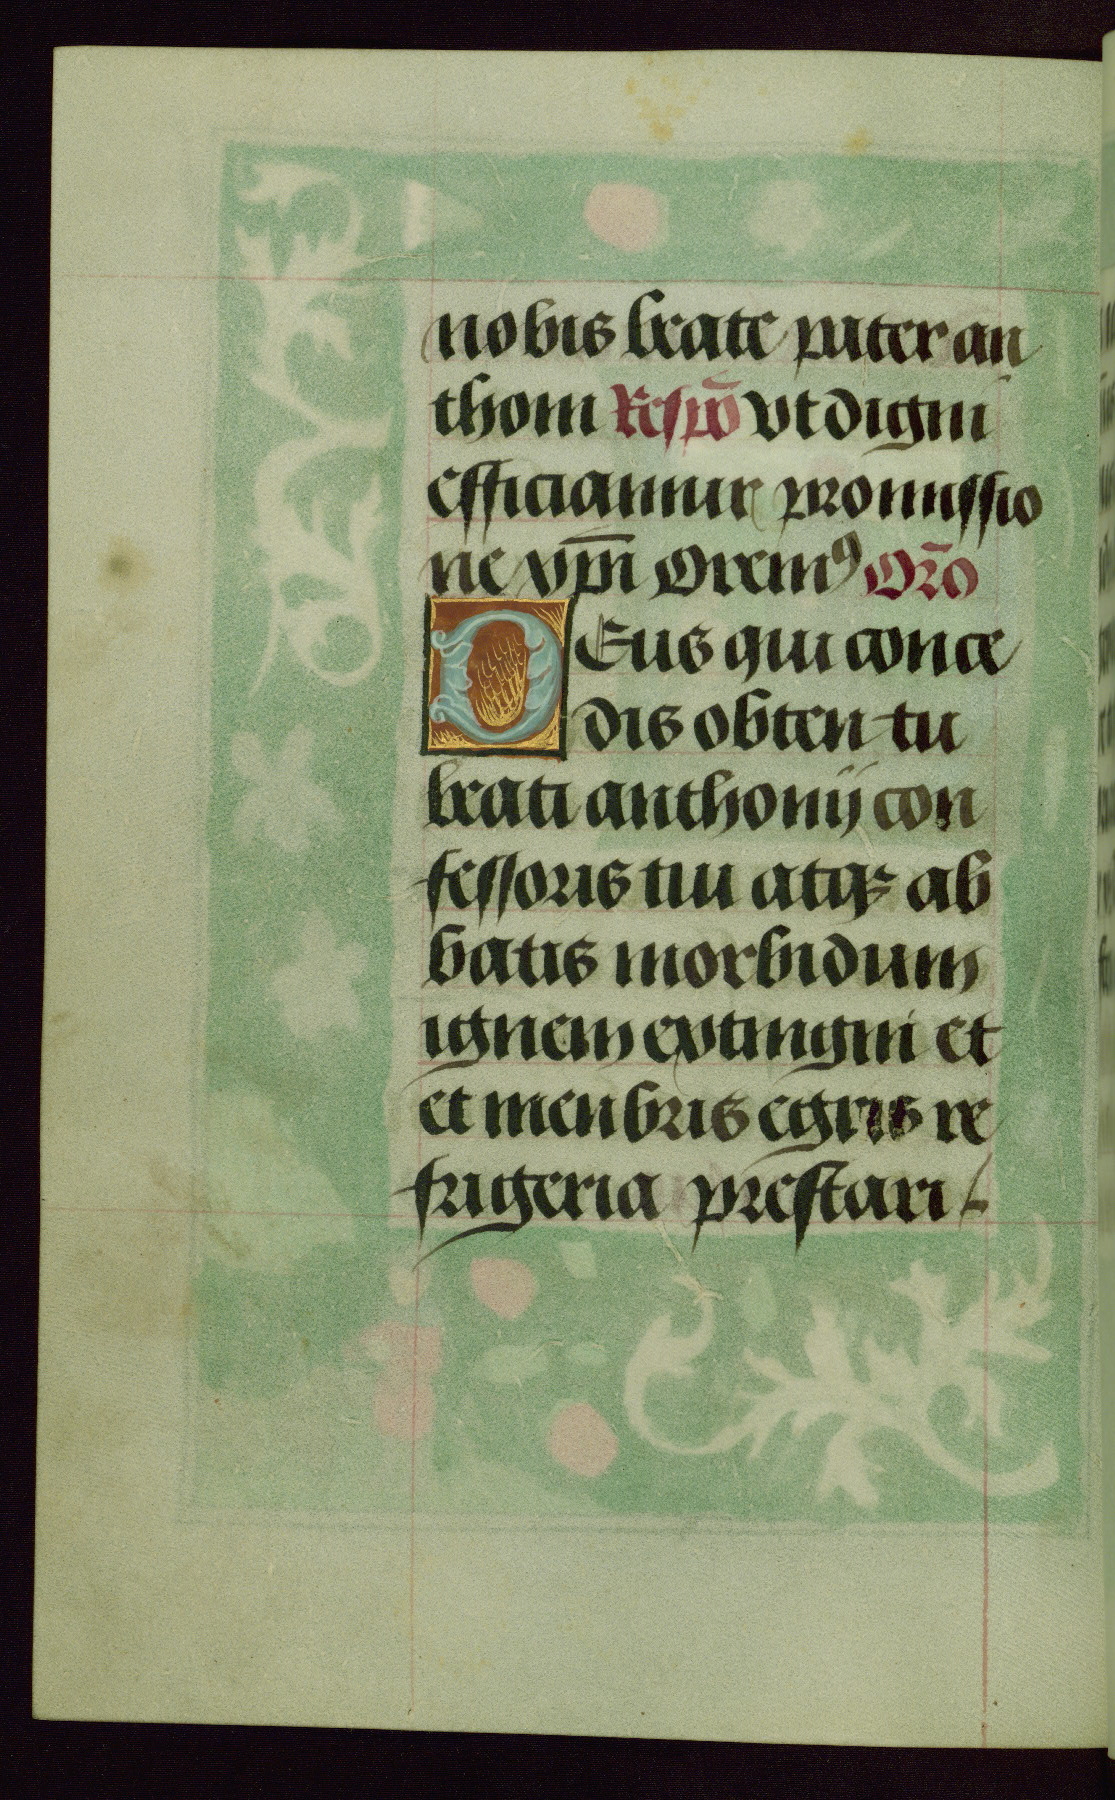 nobis beate pater an
thoni Respō vt digni
efficiamur promissio
ne xp̄i Oremꝰ Orō
DEus qui conce
dis obten tu
beati anthonij con
fessoris tui atqꝫ ab
batis morbidum
ignem extingui et
et menbris egris re
frigeria prestari